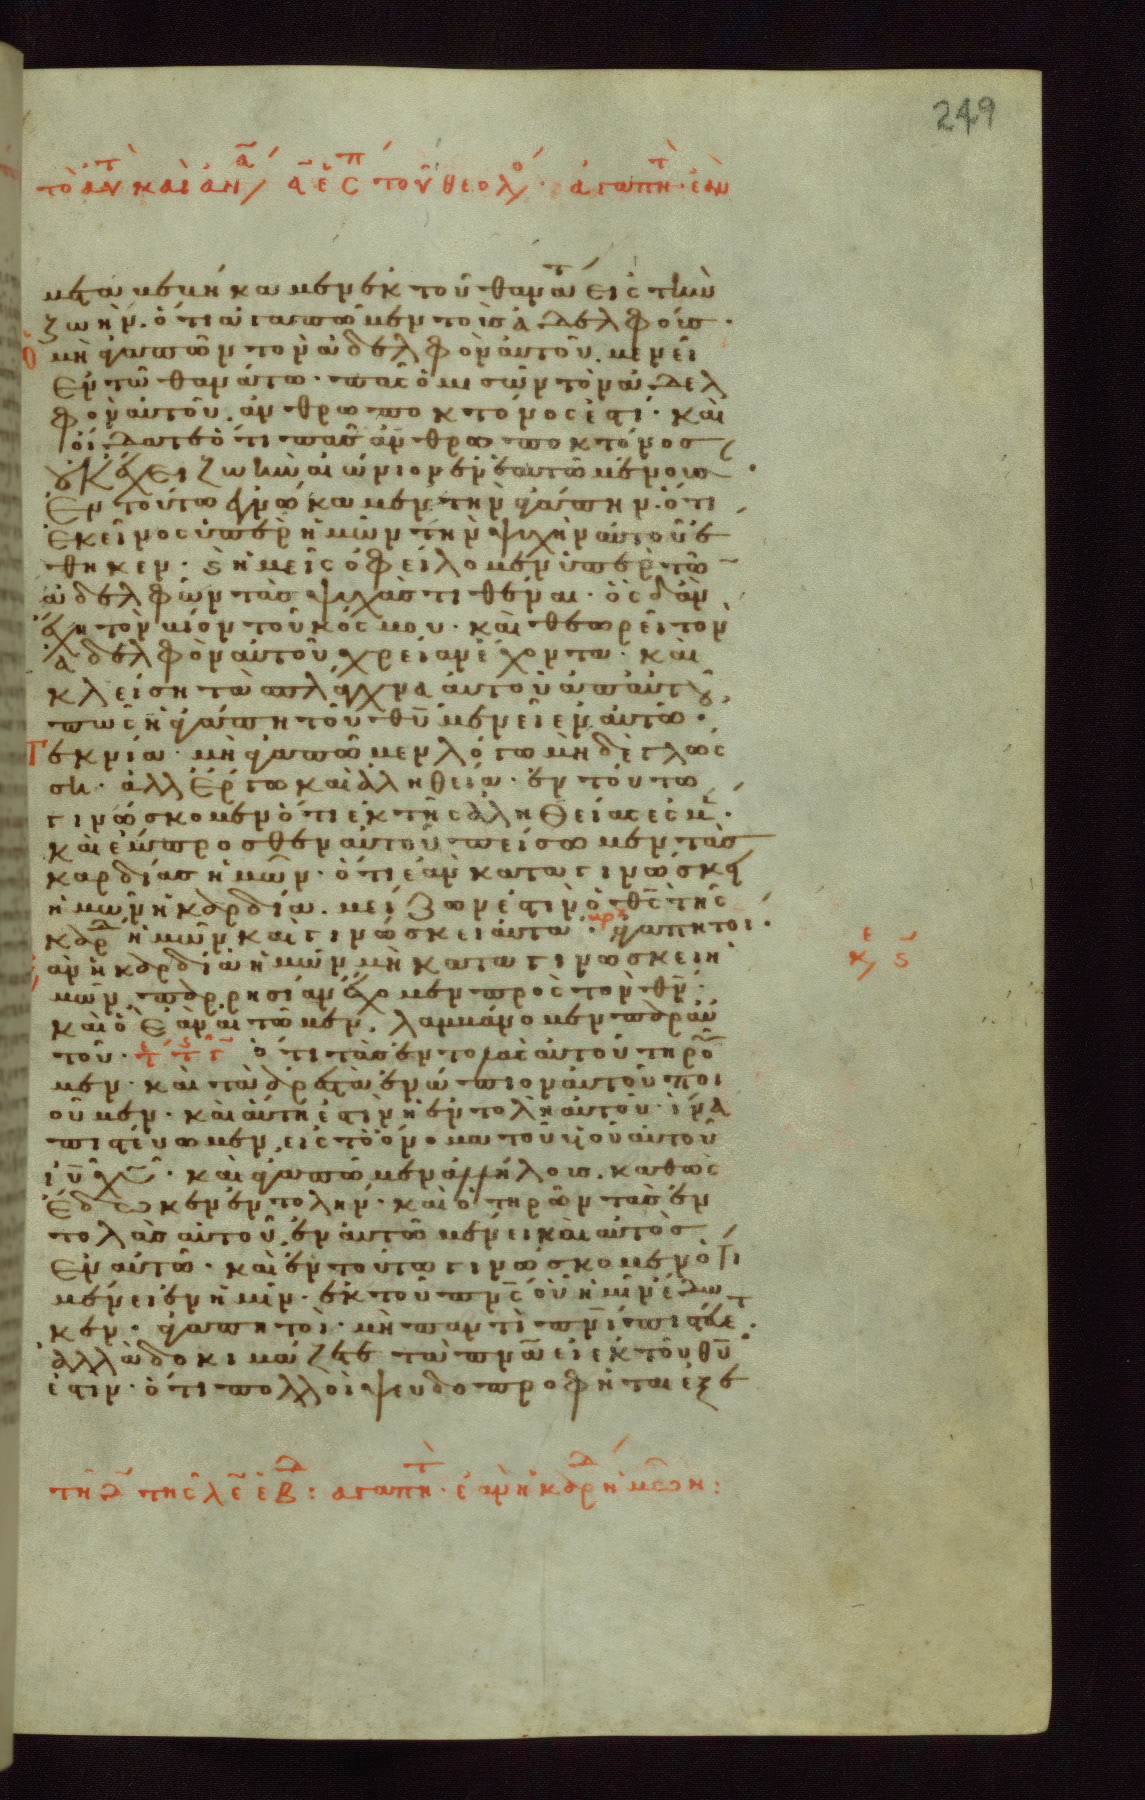 249
τὸ αὐτ καὶ ἀν α ἐπς τοῦ θεολό. ἀγαπητ. ἐὰν
μεταβεβήκαμεν ἐκ τοῦ θανάτου εἰς τὴν
ζωὴν. ὅτι ἀγαπῶμεν τοὺς ἀδελφούς. ὁ
μὴ ἀγαπῶν τὸν ἀδελφὸν αὐτοῦ. μένει
ἐν τῷ θανάτω. πᾶς ὁ μισῶν τὸν ἀδελ
φὸν αὐτοῦ. ἀνθρωποκτόνος ἐστί. καὶ
οἴδατε ὅτι πᾶς ἀνθρωποκτόνος
οὐκ ἔχει ζωὴν αἰώνιον ἐν ἑαυτῶ μένουσαν.
ἐν τούτω ἐγνώκαμεν τὴν ἀγάπην. ὅτι
ἐκεῖνος ὑπὲρ ἡμῶν τὴν ψυχὴν αὐτοῦ ἔ
θηκεν. καὶ ἡμεῖς ὀφείλομεν ὑπὲρ τῶν
ἀδελφῶν τὰς ψυχὰς τιθέναι. ὃς δ' ἂν
ἔχη τὸν βίον τοῦ κόσμου. καὶ θεωρεῖ τὸν
ἀδελφὸν αὐτοῦ χρείαν ἔχοντα. καὶ
κλείση τὰ σπλάγχνα αὐτοῦ ἀπ' αὐτοῦ,
πῶς ἡ ἀγάπη τοῦ θυ μένει ἐν αὐτῶ.
τεκνία. μὴ ἀγαπῶμεν λόγω μὴ δὲ γλώσ
ση. ἀλλ' ἔργω καὶ ἀληθεία. ἐν τούτω
γινώσκομεν ὅτι ἐκ τῆς ἀληθείας ἐσμ.
καὶ ἔμπροσθεν αὐτοῦ πείσωμεν τὰς
καρδίας ἡμῶν. ὅτι ἐὰν καταγινώσκη
ἡμῶν ἡ καρδία. μείζων ἐστὶν ὁ θς τῆς
καρδ ἡμῶν καὶ γινώσκει πάντα. αρχ ἀγαπητοί.
ἐὰν ἡ καρδία ἡμῶν μὴ καταγινώσκει ἡ
μῶν, παρρησίαν ἔχομεν πρὸς τὸν θν.
καὶ ὃ ἐὰν αἰτῶμεν, λαμβάνομεν παρ' αὐ
τοῦ. ὅτι τὰς ἐντολὰς αὐτοῦ τηροῦ
μεν. καὶ τὰ ἀρεστὰ ἐνώπιον αὐτοῦ ποι
οῦμεν. καὶ αὕτη ἐστὶν ἡ ἐντολὴ αὐτοῦ. ἵνα
πιστεύωμεν εἰς τὸ ὄνομα τοῦ υἱοῦ αὐτοῦ
ιυ χυ. καὶ ἀγαπῶμεν ἀλλήλους. καθὼς
ἔδωκεν ἐντολὴν. καὶ ὁ τηρῶν τὰς ἐν
τολὰς αὐτοῦ, ἐν αὐτῶ μένει καὶ αὐτὸς
ἐν αὐτῶ. καὶ ἐν τούτω γινώσκομεν ὅτι
μένει ἐν ἡμῖν. ἐκ τοῦ πνς οὗ ἡμῖν ἔδω
κεν. ἀγαπητοὶ. μὴ παντὶ πνι πιστεύετε.
ἀλλὰ δοκιμάζετε τὰ πνα εἰ ἐκ τοῦ θυ
ἐστιν. ὅτι πολλοὶ ψευδοπροφῆται ἐξε
τῆ δ τῆς λε ἑβδ: ἀγαπητ. ἐὰν ἡ καρδ ἡμῶν: